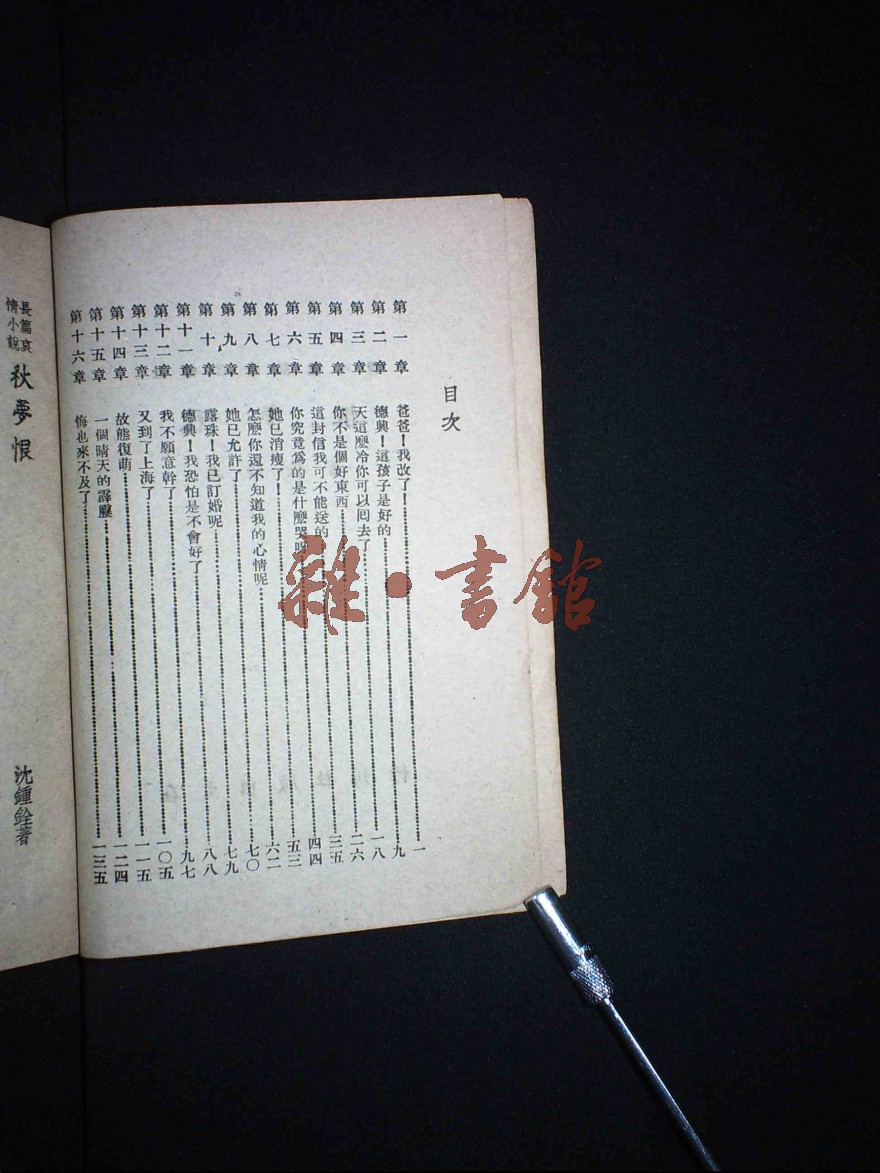 目次
第一章 爸爸!我改了!……一
第二章 德興!這孩子是好的……九
第三章 天這麽冷你可以囘去了……一八
第四章 你不是個好東西……二六
第五章 這封信我可不能送的……三五
第六章 你究竟爲的是什麽哭呀……四四
第七章 她已消瘦了!……五三
第八章 怎麽你還不知道我的心情呢……六二
第九章 她已允許了……七〇
第十章 露珠!我已訂婚呢……七九
第十一章 德興!我恐怕是不會好了……八八
第十二章 我不願意幹了……九七
第十三章 又到了上海了……一〇五
第十四章 故態復萌……一一五
第十五章 一個晴天的霹靂……一二四
第十六章 悔也來不及了……一三五
長篇哀
情小說
秋夢恨
沈鍾銓著
雜·書館